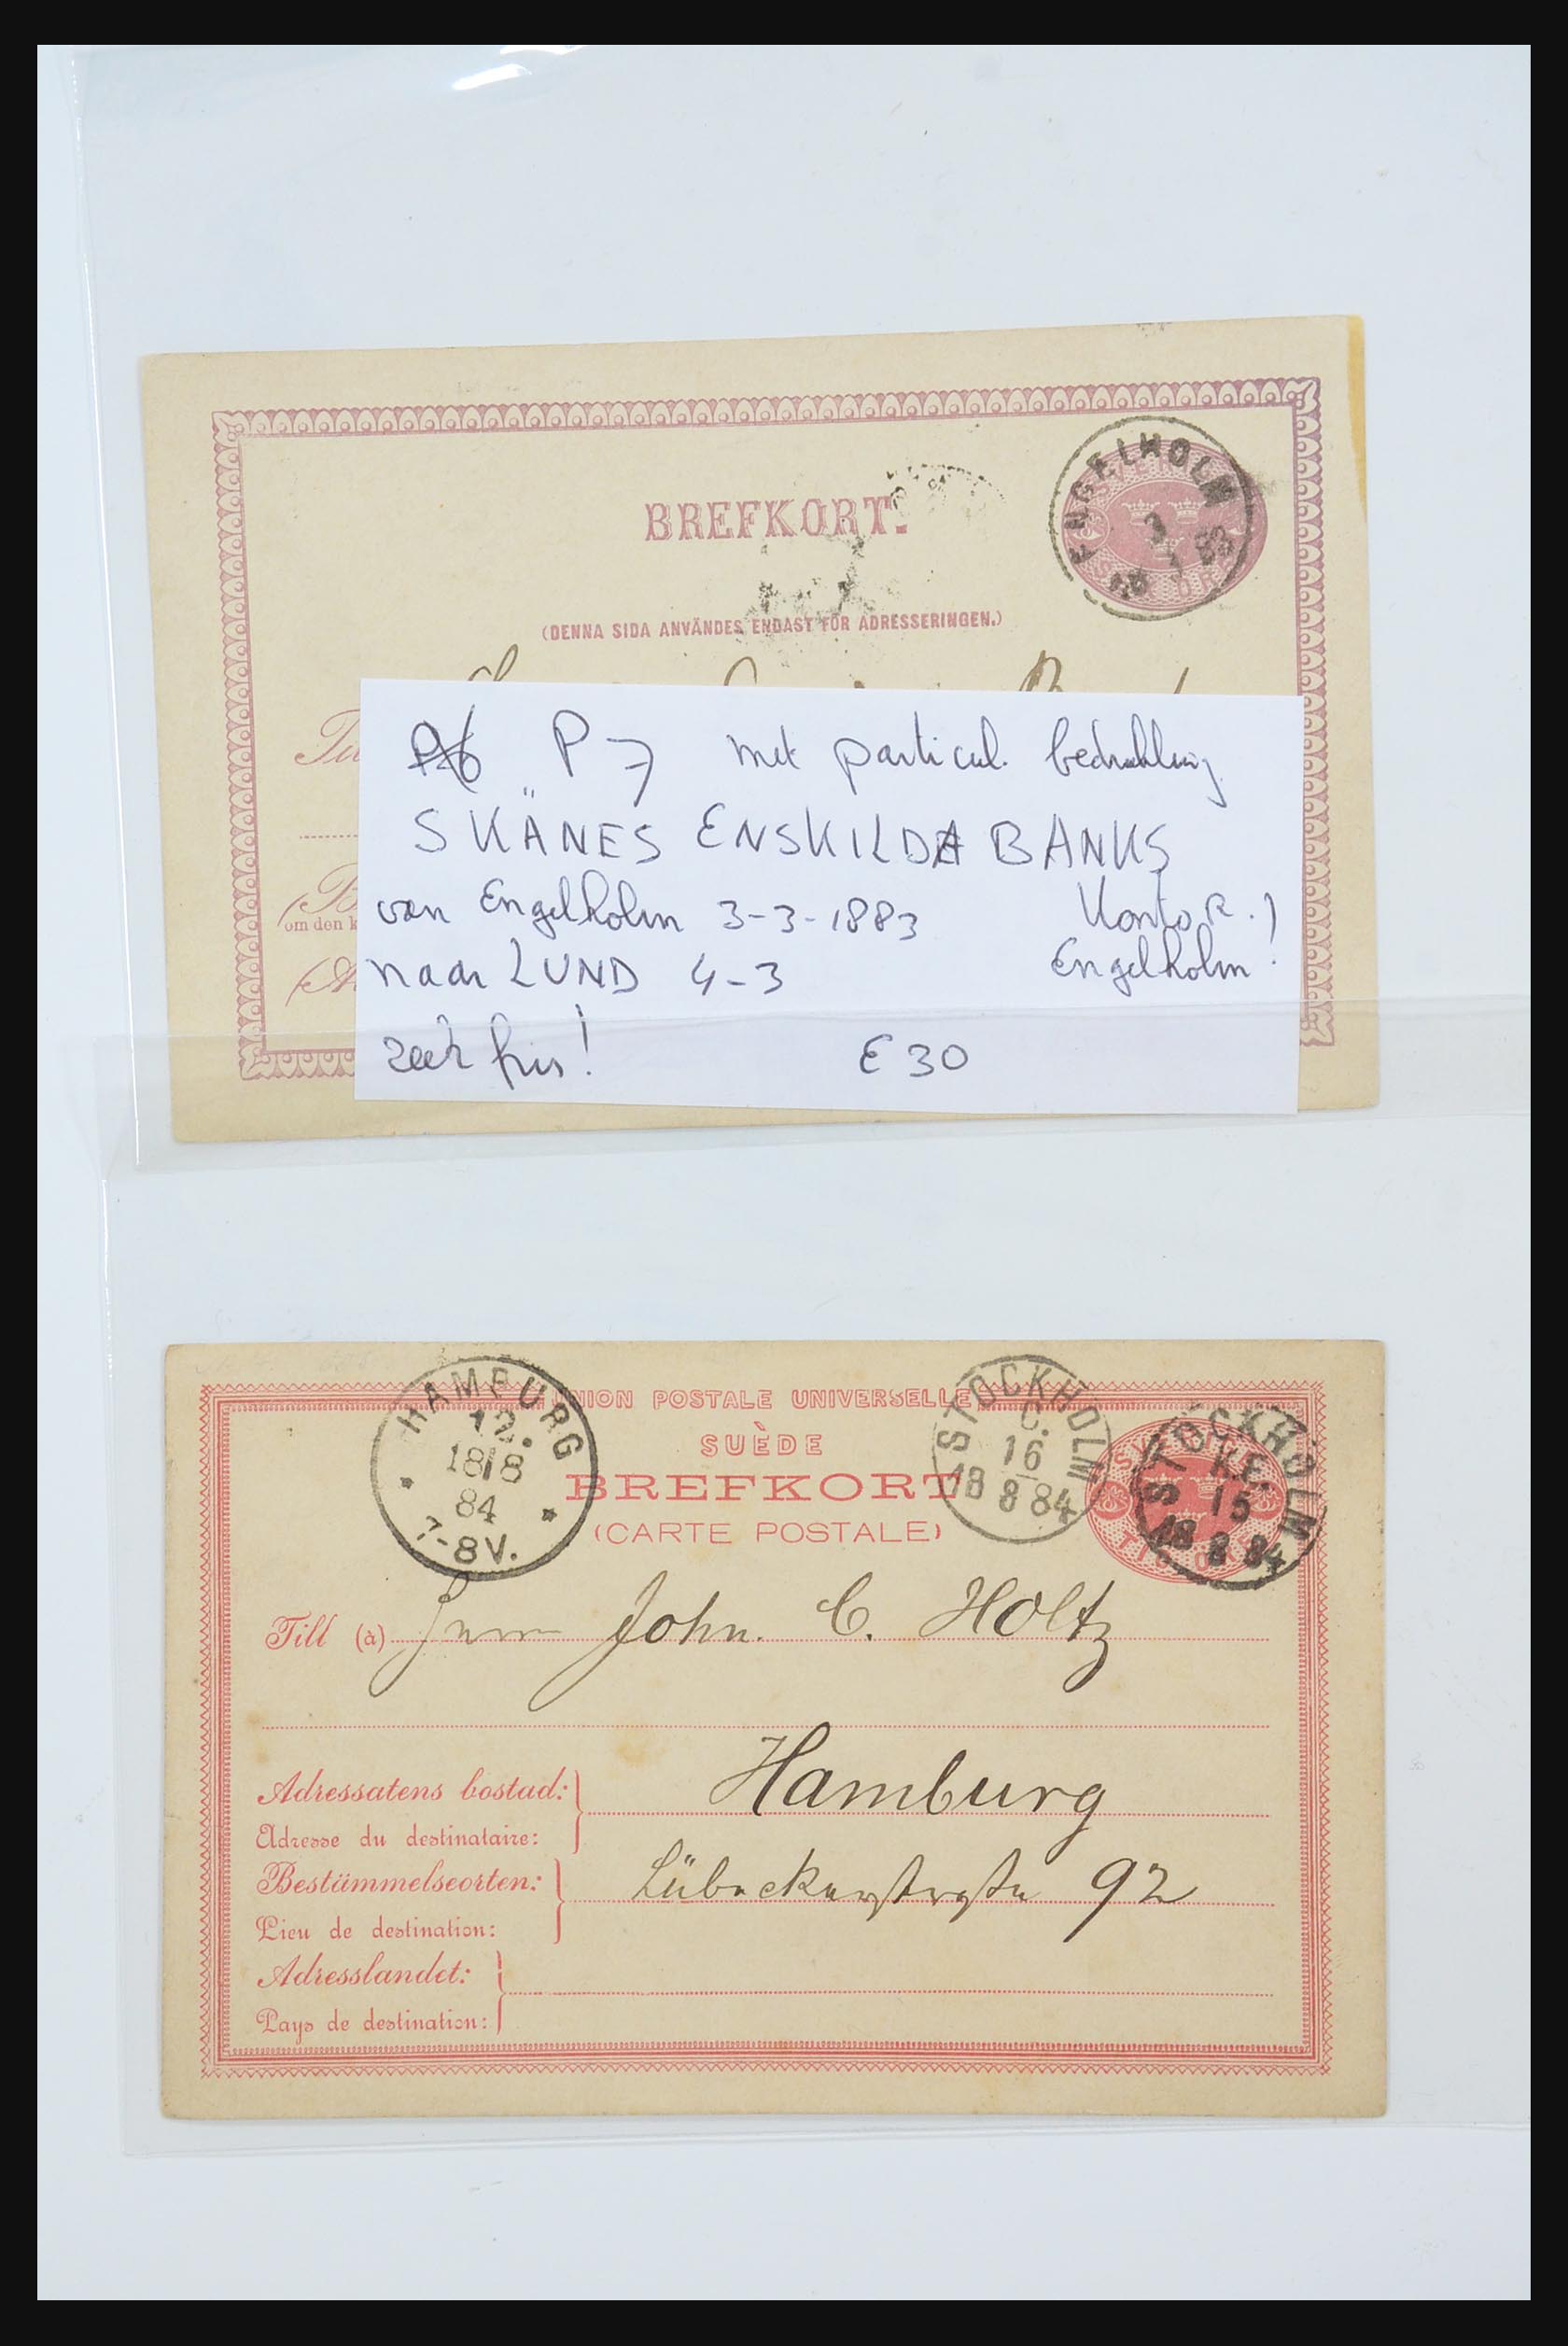 BREFKORT.
ENGELHOLM
3
(DENNA SIDA ANVÄNDES ENDAST FÖR ADRESSERINGEN.)
P7 met particul. bedrukking
SKÄNES ENSKILDA BANKS
van Engelholm 3-3-1883 Kontor.)
naar LUND 4-3 Engelholm!
zeer fris! € 30
om den k
UNION POSTALE UNIVERSELLE
SUÈDE
BREFKORT
(CARTE POSTALE)
HAMBURG
12.
18/8
84
7-8V.
STOCKHOLM
C.
16
18 8 84
STOCKHOLM
15
18 8 84
Till (à) Herrn John. C. Holtz
Adressatens bostad: Hamburg
Adresse du destinataire:
Bestämmelseorten: Lübeckerstraße 92
Lieu de destination:
Adresslandet:
Pays de destination: